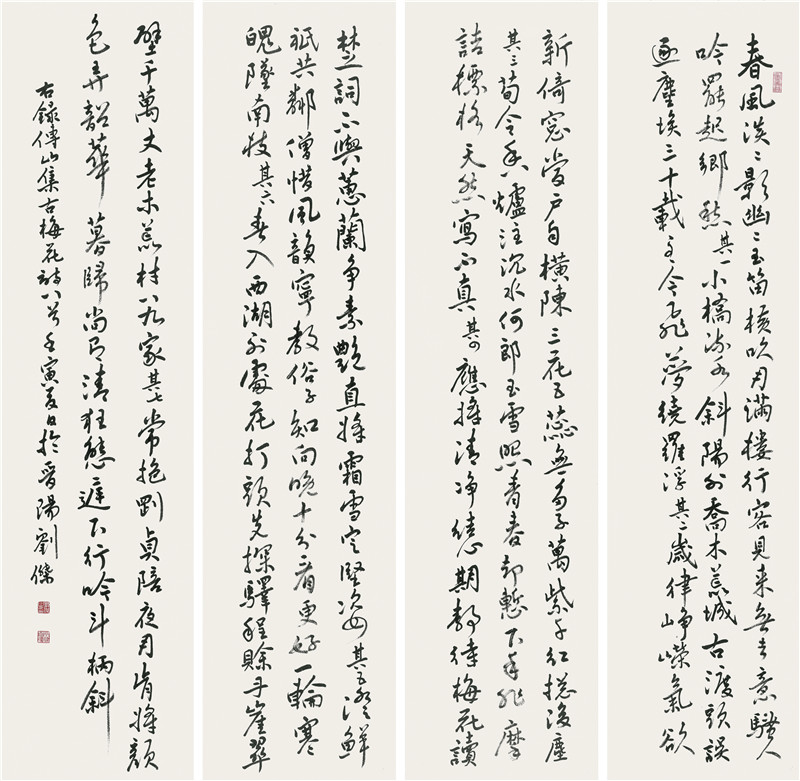 春風淡〻影幽〻玉笛橫吹月滿楼行客見来無去意騷人
吟罷起鄉愁其一小橋流水斜陽外喬木荒城古渡頭誤
逐塵埃三十載至今飛夢繞羅浮其二歲律崢嶸氣欲
新倚窓當戶自橫陳三花五蕊無多子萬紫千紅揔後塵
其三荀令香爐注沉水何郎玉雪照青春却慙下手非摩
詰標格天然寫不真其四應將清净結心期静待梅花讀
楚詞不與蕙蘭争素艷直將霜雪定堅姿其五鮮
祇共鄰僧惜風韻寧教俗子知向晚十分看更好一輪寒
魄墜南枝其六春入西湖到處花打頭先探驛程賒斗崖翠
壁千萬丈老木荒村八九家其七常抱剛貞陪夜月肯將顏
色弄韶華暮歸尚有清狂態遲下行吟斗柄斜
右錄傅山集古梅花詩八首壬寅夏日於晉陽劉傑